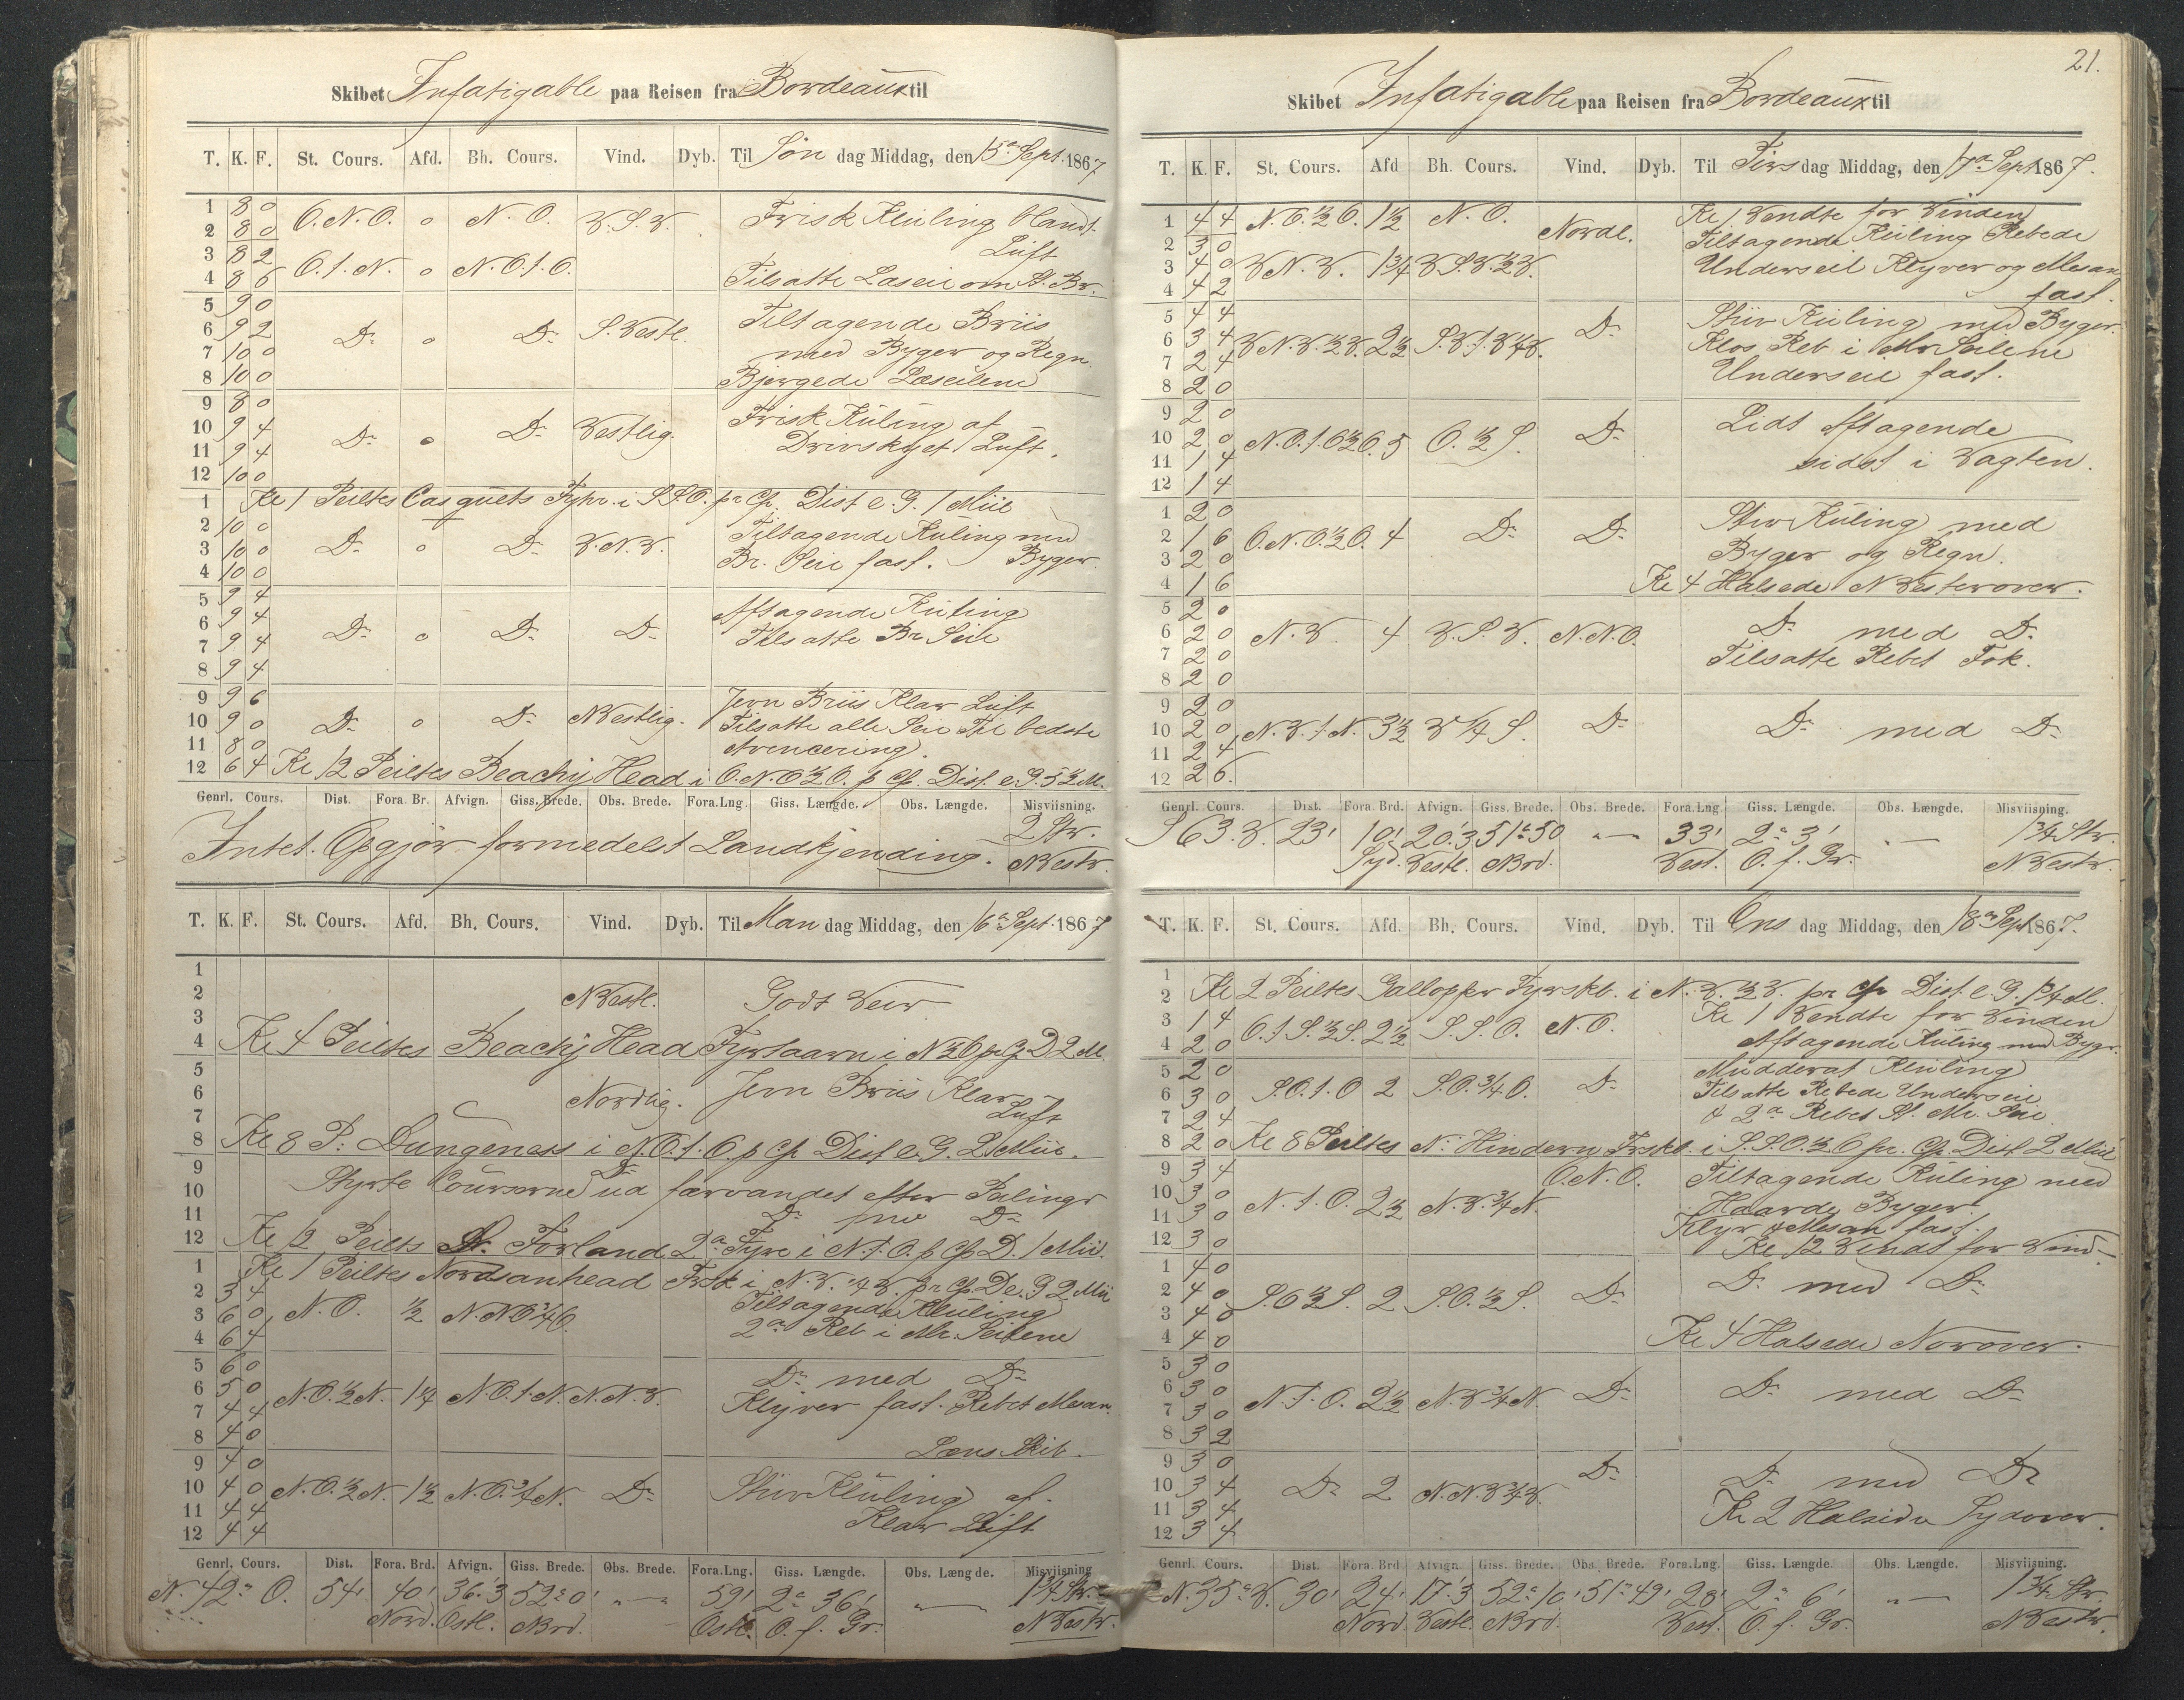 Skibet Infatigable paa Reisen fra Bordeaux til
T. K. F. St. Cours. Afd. Bh. Cours. Vind. Dyb. Til Søn dag Middag, den 15de Sept. 1867
1 8 0
2 8 0 O.N.O. 0 N.O. V.S.V. Frisk Kuling blandt
3 8 2 Luft
4 8 6 O.t.N. 0 N.O.t.O. Tilsatte Læseil om St. Br.
5 9 0
6 9 2 Do 0 Do S.Vestl. Tiltagende Briis
7 10 0 med Byger og Regn
8 10 0 Bjergede Læseilene
9 8 0
10 9 4 Do 0 Do Vestlig. Frisk Kuling af
11 9 4 Drivskyet Luft.
12 10 0
1 Kl 1 Peiltes Casquets Fyhr. i S.S.O. pr Cp. Dist e. G. 1 Miil
2 10 0 Tiltagende Kuling med
3 10 0 Do 0 Do V.N.V. Byger.
4 10 0 Br. Seil fast.
5 9 4
6 9 4 Aftagende Kuling
7 9 4 Do 0 Do Do Tilsatte Br Seil
8 9 4
9 9 6 Jevn Briis Klar Luft
10 9 0 Do 0 Do NVestlig. Tilsatte alle Seil Til bedste
11 8 0 Avencering.
12 6 4 Kl 12 Peiltes Beachij Head i O.N.O½O. p Cp. Dist. e. G. 5½ M.
Genrl. Cours. Dist. Fora. Br. Afvign. Giss. Brede. Obs. Brede. Fora.Lng. Giss. Længde. Obs. Længde. Misviisning.
Intet Opgjør formedelst Landkjending. 2 Str.
NVestr.
T. K. F. St. Cours. Afd. Bh. Cours. Vind. Dyb. Til Man dag Middag, den 16de Sept. 1867
1
2 NVestl. Godt Veir
3
4 Kl 4 Peiltes Beachij Head Fyrtaarn i N½O pr Cp D 2 M.
5
6 Nordlig. Jevn Briis Klar
7 Luft
8 Kl 8 P. Dungeness i N.O.t.O. p Cp Dist e. G. 2 Miil.
9 Do
10 Styrte Courserne ud farvandet efter Peilinger
11 Do Do
12 Kl 12 Peiltes S. Forland 2de Fyre i N.t.O. p Cp D. 1 Miil.
1 Kl 1 Peiltes Nordsanhead Frsk i N.V.¼V. pr Cp D e. G 2 Mii
2 3 4 Tiltagende Kuling
3 6 0 N.O. ½ N.NO¾O.
4 6 4 2de Reb i Mr. Seilene
5 6 0
6 5 0 N.O.½N. 1¼ N.O.t.N. N.N.V. Do med Do
7 4 4 Klyver fast. Rebet Mesan.
8 4 0 Læns Skib.
9 4 0
10 4 0 N.O.½N. 1½ N.O.¾N. Do Stiv Kuling af
11 4 4 Klar Luft
12 4 4
Genrl. Cours. Dist. Fora. Brd. Afvign. Giss. Brede. Obs. Brede. Fora.Lng. Giss. Længde. Obs. Længde. Misviisning
N. 42° O. 54' 40' 36.'3 52° 0' „—„ 59' 2° 36' „—„ 1¾ Str.
Nord. Ostl. NBrd. Ostl. O. f. Gr. NVestr.
21.
Skibet Infatigable paa Reisen fra Bordeaux til
T. K. F. St. Cours. Afd Bh. Cours. Vind. Dyb. Til Tirs dag Middag, den 17de Sept 1867.
1 4 4 N.O.½O. 1½ N.O. Nordl. Kl 1 Vendte for Vinden
2 3 0 Tiltagende Kuling Rebede
3 4 0 VN.V. 1¾ V.S.V.½V. Underseil Klyver og Mesan
4 4 2 fast.
5 4 4 Stiv Kuling med Byger.
6 3 4 VN.V.½V. 2½ S.V.t.V¼V. Do Klos Reb i Mr Seilene
7 2 4 Underseil fast.
8 2 0
9 2 0 Lidt Aftagende
10 2 0 N.O.t.O½O. 5 O.½S. Do sidst i Vagten.
11 1 4
12 1 4
1 2 0 Stiv Kuling med
2 1 6 O.N.O.½O. 4 Do Do Byger og Regn.
3 2 0
4 1 6 Kl 4 Halsede NVesterover.
5 2 0
6 2 0 N.V. 4 V.S.V. N.N.O. Do med Do
7 2 0 Tilsatte Rebet Fok.
8 2 0
9 2 0
10 2 0 N.V.t.N. 3½ V¼S. Do Do med Do
11 2 4
12 2 6.
Genrl. Cours. Dist. Fora. Brd. Afvign. Giss. Brede. Obs. Brede. Fora.Lng Giss. Længde. Obs. Længde. Misviisning.
S 63. V. 23' 10' 20.'3 51° 50 „—„ 33' 2° 3' „—„ 1¾ Str.
Syd. Vestl. NBrd. Vest. O. f. Gr. NVestr.
T. K. F. St. Cours. Afd. Bh. Cours. Vind. Dyb. Til Ons dag Middag, den 18de Sept 1867.
1
2 Kl 2 Peiltes Gallopper Fyrskb. i N.V.½V. pr Cp Dist e. G. 1¾ M.
3 1 4 Kl 1 Vendte for Vinden
4 2 0 O.t.S.½S. 2½ S.S.O. N.O. Aftagende Kuling med Bygr.
5 2 0 Mudderat Kuling
6 3 0 S.O.t.O 2 S.O.¾O. Do Tilsatte Rebede Underseil
7 2 4 & 2de Rebet St. Mr. Seil
8 2 0 Kl 8 Peiltes N. Hindern Frskb. i S.S.O.½O pr. Cp. Dist 2 Miil
9 3 4 O.N.O. Tiltagende Kuling med
10 3 0 N.t.O. 2½ N.V.¾N. Haarde Byger.
11 3 0 Klyv & Mesan fast.
12 3 0 Kl 12 Vendt for Vind
1 4 0
2 4 0 S.O½S. 2 S.O.½S. Do Do med Do
3 4 0
4 4 0 Kl 4 Halsede Norover.
5 3 0
6 3 0 N.t.O. 2½ N.V¾N Do Do med Do
7 3 0
8 3 2
9 3 0
10 3 4 Do 2 N.N.V¾V. Do Do med Do
11 3 4 Kl 2 Halsede Sydover.
12 3 4
Genrl. Cours. Dist. Fora. Brd Afvign. Giss. Brede. Obs. Brede. Fora.Lng. Giss. Længde. Obs. Længde. Misviisning.
N. 35° V. 30' 24' 17.'3 52° 10' 51° 49' 28' 2° 6' „—„ 1¾ Str.
Nord Vestl. NBrd. Vest. O. f. Gr. NVestr.